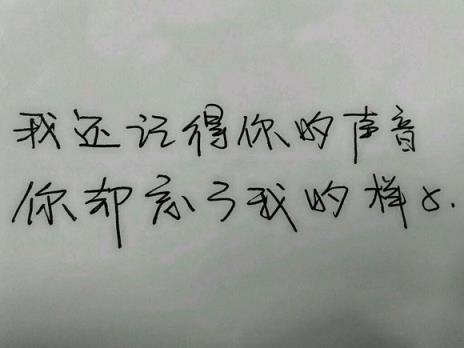 我还记得你的声音
你却忘了我的样子.